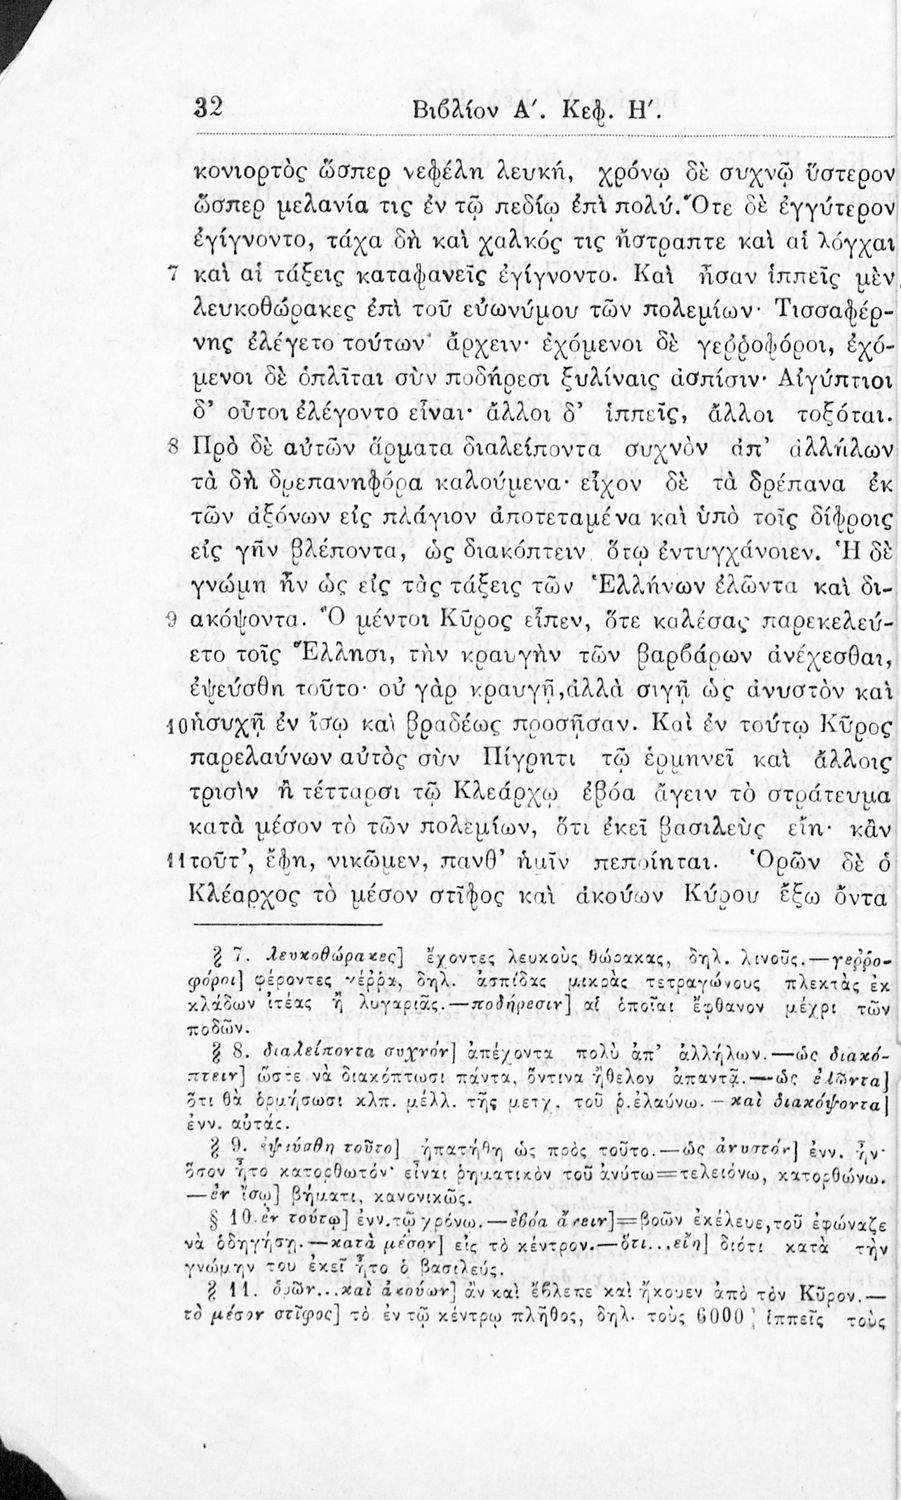 32 Βιβλίον Α΄. Κεφ. Η΄.
κονιορτὸς ὥσπερ νεφέλη λευκή, χρόνῳ δὲ συχνῷ ὕστερον
ὥσπερ μελανία τις ἐν τῷ πεδίῳ ἐπὶ πολύ. Ὅτε δὲ ἐγγύτερον
ἐγίγνοντο, τάχα δὴ καὶ χαλκός τις ἤστραπτε καὶ αἱ λόγχαι
7 καὶ αἱ τάξεις καταφανεῖς ἐγίγνοντο. Καὶ ἦσαν ἱππεῖς μὲν
λευκοθώρακες ἐπὶ τοῦ εὐωνύμου τῶν πολεμίων· Τισσαφέρ-
νης ἐλέγετο τούτων ἄρχειν· ἐχόμενοι δὲ γεῤῥοφόροι, ἐχό-
μενοι δὲ ὁπλῖται σὺν ποδήρεσι ξυλίναις ἀσπίσιν· Αἰγύπτιοι
δ’ οὗτοι ἐλέγοντο εἶναι· ἄλλοι δ’ ἱππεῖς, ἄλλοι τοξόται.
8 Πρὸ δὲ αὐτῶν ἅρματα διαλείποντα συχνὸν ἀπ’ ἀλλήλων
τὰ δὴ δρεπανηφόρα καλούμενα· εἶχον δὲ τὰ δρέπανα ἐκ
τῶν ἀξόνων εἰς πλάγιον ἀποτεταμένα καὶ ὑπὸ τοῖς δίφροις
εἰς γῆν βλέποντα, ὡς διακόπτειν ὅτῳ ἐντυγχάνοιεν. Ἡ δὲ
γνώμη ἦν ὡς εἰς τὰς τάξεις τῶν Ἑλλήνων ἐλῶντα καὶ δι-
9 ακόψοντα. Ὃ μέντοι Κῦρος εἶπεν, ὅτε καλέσας παρεκελεύ-
ετο τοῖς Ἕλλησι, τὴν κραυγὴν τῶν βαρβάρων ἀνέχεσθαι,
ἐψεύσθη τοῦτο· οὐ γὰρ κραυγῇ, ἀλλὰ σιγῇ ὡς ἀνυστὸν καὶ
10 ἡσυχῇ ἐν ἴσῳ καὶ βραδέως προσῇσαν. Καὶ ἐν τούτῳ Κῦρος
παρελαύνων αὐτὸς σὺν Πίγρητι τῷ ἑρμηνεῖ καὶ ἄλλοις
τρισὶν ἢ τέτταρσι τῷ Κλεάρχῳ ἐβόα ἄγειν τὸ στράτευμα
κατὰ μέσον τὸ τῶν πολεμίων, ὅτι ἐκεῖ βασιλεὺς εἴη· κἂν
11 τοῦτ’, ἔφη, νικῶμεν, πανθ’ ἡμῖν πεποίηται. Ὁρῶν δὲ ὁ
Κλέαρχος τὸ μέσον στῖφος καὶ ἀκούων Κύρου ἔξω ὄντα
§ 7. λευκοθώρακες] ἔχοντες λευκοὺς θώρακας, δηλ. λινοῦς.—γεῤῥο-
φόροι] φέροντες γέῤῥα, δηλ. ἀσπίδας μικρὰς τετραγώνους πλεκτὰς ἐκ
κλάδων ἰτέας ἢ λυγαριᾶς.—ποδήρεσιν] αἱ ὁποῖαι ἔφθανον μέχρι τῶν
ποδῶν.
§ 8. διαλείποντα συχνόν] ἀπέχοντα πολὺ ἀπ’ ἀλλήλων.—ὡς διακό-
πτειν] ὥστε νὰ διακόπτωσι πάντα, ὅντινα ἤθελον ἀπαντᾷ.—ὡς ἐλῶντα]
ὅτι θὰ ὁρμήσωσι κλπ. μέλλ. τῆς μετχ. τοῦ ῥ. ἐλαύνω. – καὶ διακόψοντα]
ἐνν. αὐτάς.
§ 9. ἐψεύσθη τοῦτο] ἠπατήθη ὡς πρὸς τοῦτο.—ὡς ἀνυστόν] ἐνν. ἦν·
ὅσον ἦτο κατορθωτόν· εἶναι ῥηματικὸν τοῦ ἀνύτω=τελειόνω, κατορθώνω.
—ἐν ἴσῳ] βήματι, κανονικῶς.
§ 10. ἐν τούτῳ] ἐνν. τῷ χρόνῳ.—ἐβόα ἄγειν]=βοῶν ἐκέλευε, τοῦ ἐφώναζε
νὰ ὁδηγήσῃ.—κατὰ μέσον] εἰς τὸ κέντρον.—ὅτι...εἴη] διότι κατὰ τὴν
γνώμην του ἐκεῖ ἦτο ὁ βασιλεύς.
§ 11. ὁρῶν...καὶ ἀκούων] ἂν καὶ ἔβλεπε καὶ ἤκουεν ἀπὸ τὸν Κῦρον.—
τὸ μέσον στῖφος] τὸ ἐν τῷ κέντρῳ πλῆθος, δηλ. τοὺς 6000 ἱππεῖς τοὺς